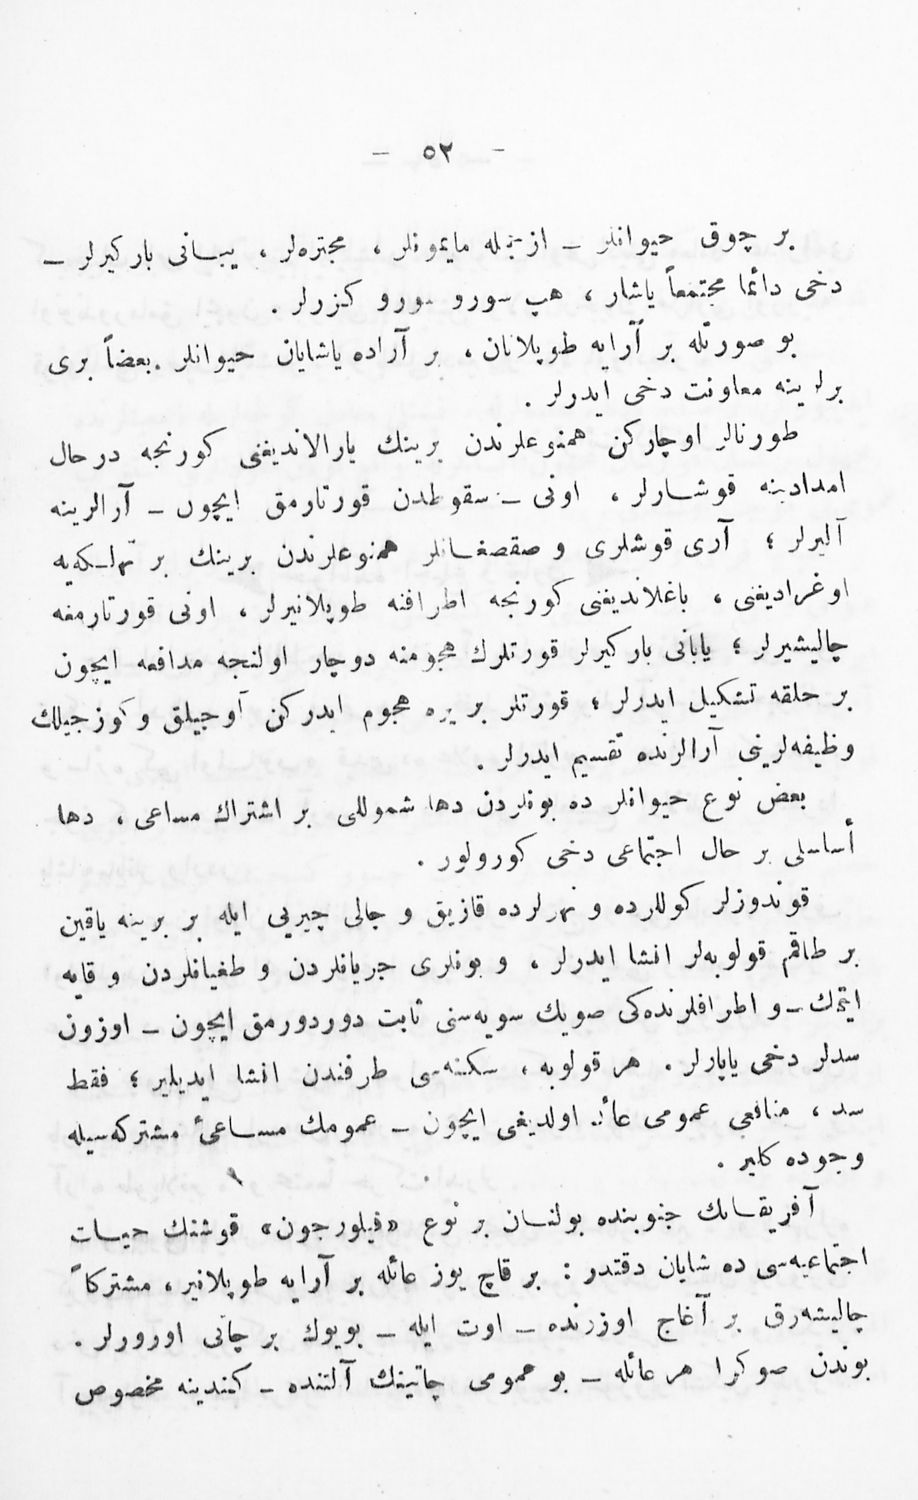 - ٥٢ -
بر چوق حیوانلر ــ ازجمله مایمونلر ، مجتره‌لر ، یبانی بارکیرلر ــ
دخی دائما مجتمعاً یاشار ، هپ سورو سورو کزرلر .
بو صورتله بر آرایه طوپلانان ، بر آراده یاشایان حیوانلر بعضاً بری
برلرینه معاونت دخی ایدرلر .
طورنالر اوچارکن همنوعلرندن برینك یارالاندیغنی کورنجه درحال
امدادینه قوشارلر ، اونی ــ سقوطدن قورتارمق ایچون ــ آرالرینه
آلیرلر ؛ آری قوشلری و صقصغانلر همنوعلرندن برینك بر تهلـکه‌یه
اوغرادیغنی ، باغلاندیغنی کورنجه اطرافنه طوپلانیرلر ، اونی قورتارمغه
چالیشیرلر ؛ یابانی بارکیرلر قورتلرك هجومنه دوچار اولنجه مدافعه ایچون
بر حلقه تشکیل ایدرلر ؛ قورتلر بر یره هجوم ایدرکن آوجیلق و کوزجیلك
وظیفه‌لرینی آرالرنده تقسیم ایدرلر .
بعض نوع حیوانلر ده بونلردن دها شموللی بر اشتراك مساعی ، دها
أساسلی بر حال اجتماعی دخی کورولور .
قوندوزلر کوللرده و نهرلرده قازیق و چالی چیرپی ایله بر برینه یاقین
بر طاقم قولوبه‌لر انشا ایدرلر ، و بونلری جریانلردن و طغیانلردن وقایه
ایتمك ــ و اطرافلرنده‌کی صویك سویه‌سنی ثابت دوردورمق ایچون ــ اوزون
سدلر دخی یاپارلر . هر قولوبه ، سکنه‌سی طرفندن انشا ایدیلیر ؛ فقط
سد ، منافعی عمومی عائد اولدیغی ایچون ــ عمومك مساعیٔ مشترکه‌سیله
وجوده کلیر .
آفریقانك جنوبنده بولنان بر نوع «فیلورجون» قوشنك حیات
اجتماعیه‌سی ده شایان دقتدر : بر قاچ یوز عائله بر آرایه طوپلانیر ، مشترکاً
چالیشه‌رق بر آغاج اوزرنده ــ اوت ایله ــ بویوك بر چاتی اورورلر .
بوندن صوکرا هر عائله ــ بو عمومی چاتینك آلتنده ــ کندینه مخصوص